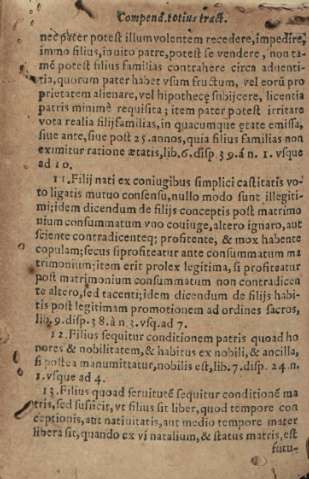 Compend. totius tract.
nec pater potest illum volentem recedere, impedire,
immo filius, inuito patre, potest se vendere, non ta-
mē potest filius familias contrahere circa aduenti-
tia, quorum pater habet vsum fructum, vel eorū pro
prietatem alienare, vel hipothecę subijcere, licentia
patris minimè requisita; item pater potest irritare
vota realia filijfamilias, in quacumque ętate emissa,
siue ante, siue post 25. annos, quia filius familias non
eximitur ratione ætatis, lib. 6. disp 39. à n. 1. vsque
ad 10.
11. Filij nati ex coniugibus simplici castitatis vo-
to ligatis mutuo consensu, nullo modo sunt illegiti-
mi; idem dicendum de filijs conceptis post matrimo
nium consummatum vno couiuge, altero ignaro, aut
sciente contradicenteq; profitente, & mox habente
copulam; secus si profiteatur ante consummatum ma
trimonium; item erit prolex legitima, si profiteatur
post matrimonium consummatum non contradicen
te altero, sed tacenti; idem dicendum de filijs habi-
tis post legitimam promotionem ad ordines sacros,
lib. 9. disp. 38. à n 3. vsq. ad 7.
12. Filius sequitur conditionem patris quoad ho
nores & nobilitatem, & habitus ex nobili, & ancilla,
si postea manumittatur, nobilis est, lib. 7. disp. 24. n.
1. vsque ad 4.
13. Filius quoad seruitutē sequitur conditionē ma
tris, sed sufficit, vt filius sit liber, quod tempore con
ceptionis, aut natiuitatis, aut medio tempore mater
libera sit, quando ex vi natalium, & status matris, est
futu-